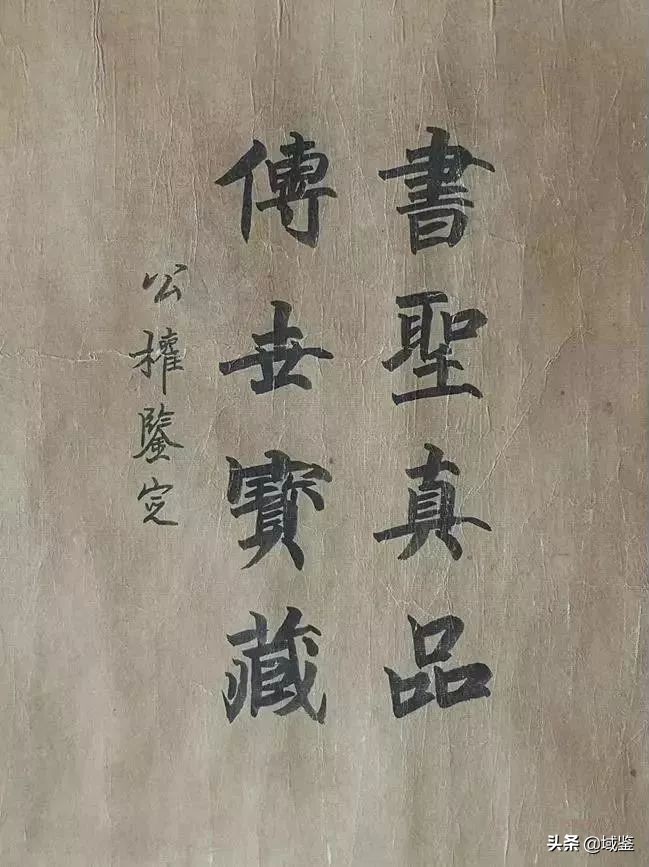 書聖真品
傳世寶藏
公權鑒定
头条 @域鉴